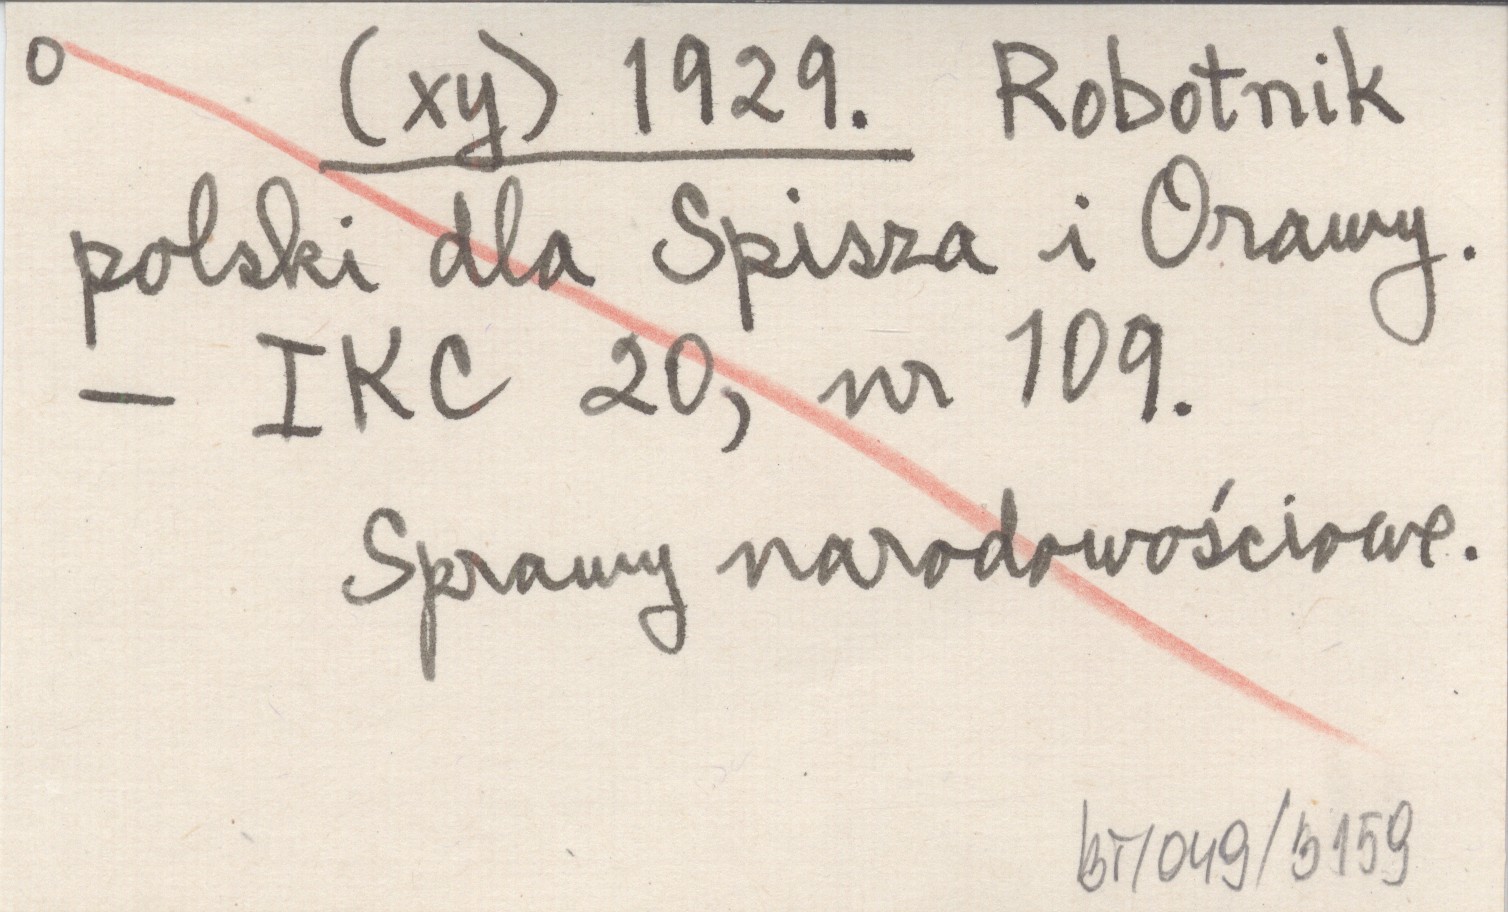 o (xy) 1929. Robotnik
polski dla Spisza i Orawy.
— IKC 20, nr 109.
Sprawy narodowościowe.
BT/049/3159